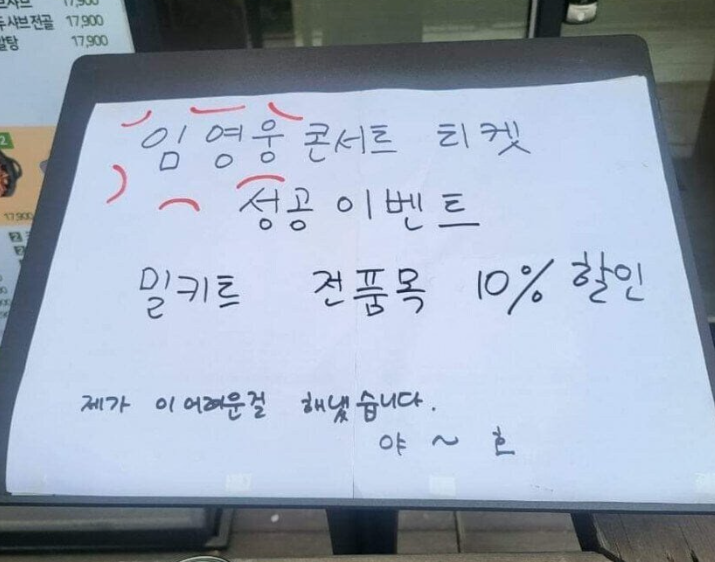 17,900
두샤브전골 17,900
17,900
임영웅 콘서트 티켓
성공이벤트
밀키트 전품목 10% 할인
제가 이 어려운걸 해냈습니다.
야 ~ 흐
2
17,900
2